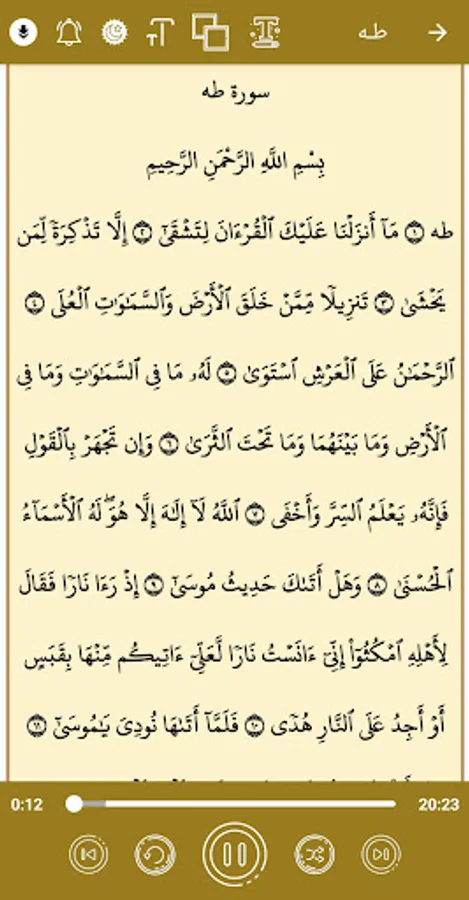 طه
سورة طه
بِسْمِ اللَّهِ الرَّحْمَنِ الرَّحِيمِ
طه ١ مَآ أَنزَلْنَا عَلَيْكَ ٱلْقُرْءَانَ لِتَشْقَىٰٓ ٢ إِلَّا تَذْكِرَةً لِّمَن
يَخْشَىٰ ٣ تَنزِيلًا مِّمَّنْ خَلَقَ ٱلْأَرْضَ وَٱلسَّمَٰوَٰتِ ٱلْعُلَى ٤
ٱلرَّحْمَٰنُ عَلَى ٱلْعَرْشِ ٱسْتَوَىٰ ٥ لَهُۥ مَا فِى ٱلسَّمَٰوَٰتِ وَمَا فِى
ٱلْأَرْضِ وَمَا بَيْنَهُمَا وَمَا تَحْتَ ٱلثَّرَىٰ ٦ وَإِن تَجْهَرْ بِٱلْقَوْلِ
فَإِنَّهُۥ يَعْلَمُ ٱلسِّرَّ وَأَخْفَى ٧ ٱللَّهُ لَآ إِلَٰهَ إِلَّا هُوَ ۖ لَهُ ٱلْأَسْمَآءُ
ٱلْحُسْنَىٰ ٨ وَهَلْ أَتَىٰكَ حَدِيثُ مُوسَىٰٓ ٩ إِذْ رَءَا نَارًا فَقَالَ
لِأَهْلِهِ ٱمْكُثُوٓا۟ إِنِّىٓ ءَانَسْتُ نَارًا لَّعَلِّىٓ ءَاتِيكُم مِّنْهَا بِقَبَسٍ
أَوْ أَجِدُ عَلَى ٱلنَّارِ هُدًى ١٠ فَلَمَّآ أَتَىٰهَا نُودِىَ يَٰمُوسَىٰٓ ١١
0:12 20:23